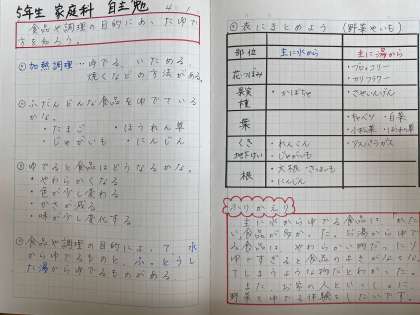 5年生 家庭科 自主勉
食品や調理の目的にあったゆで
方を知ろう。
加熱調理…ゆでる、いためる、
焼くなどの方法がある。
ふだんどんな食品をゆでている
かな。
・たまご ・ほうれん草
・じゃがいも ・にんじん
ゆでると食品はどうなるかな。
・やわらかくなる
・色が少し変わる
・かさが減る
・味が少し変化する
食品や調理の目的によって、水
からゆでるものと、ふっとうし
た湯からゆでるものがある。
表にまとめよう (野菜やいも)
部位 主に水から 主に湯から
花・つぼみ ・ブロッコリー
・カリフラワー
果実 ・かぼちゃ ・さやいんげん
種
葉 ・キャベツ ・白菜
・小松菜 ・ほうれん草
くき ・れんこん ・アスパラガス
地下けい ・じゃがいも
根 ・大根 ・さつまいも
・にんじん
ふりかえり
主に水からゆでる食品は、かた
い食品が多かった。お湯からゆで
る食品は、やわらかい物だった
ゆですぎると食品のよさがなくな
てしまうような物だとわかった。
また、お家の人といっしょに、
野菜をゆでる体験をしたいです。